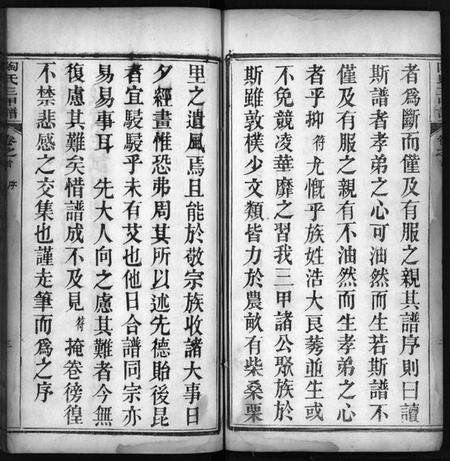 者爲斷而僅及有服之親其譜序則曰讀
斯譜者孝弟之心可油然而生若斯譜不
僅及有服之親有不油然而生孝弟之心
者乎抑 符 尤慨乎族姓浩大良莠並生或
不免競凌華靡之習我三甲諸公聚族於
斯雖敦樸少文類皆力於農畝有柴桑栗
里之遺風焉且能於敬宗族收諸大事日
夕經畫惟恐弗周其所以述先德貽後昆
者宜駸駸乎未有艾也他日合譜同宗亦
易易事耳 先大人向之慮其難者今無
復慮其難矣惜譜成不及見 符 掩卷徬徨
不禁悲感之交集也謹走筆而爲之序
陶氏三甲譜
卷之首 序